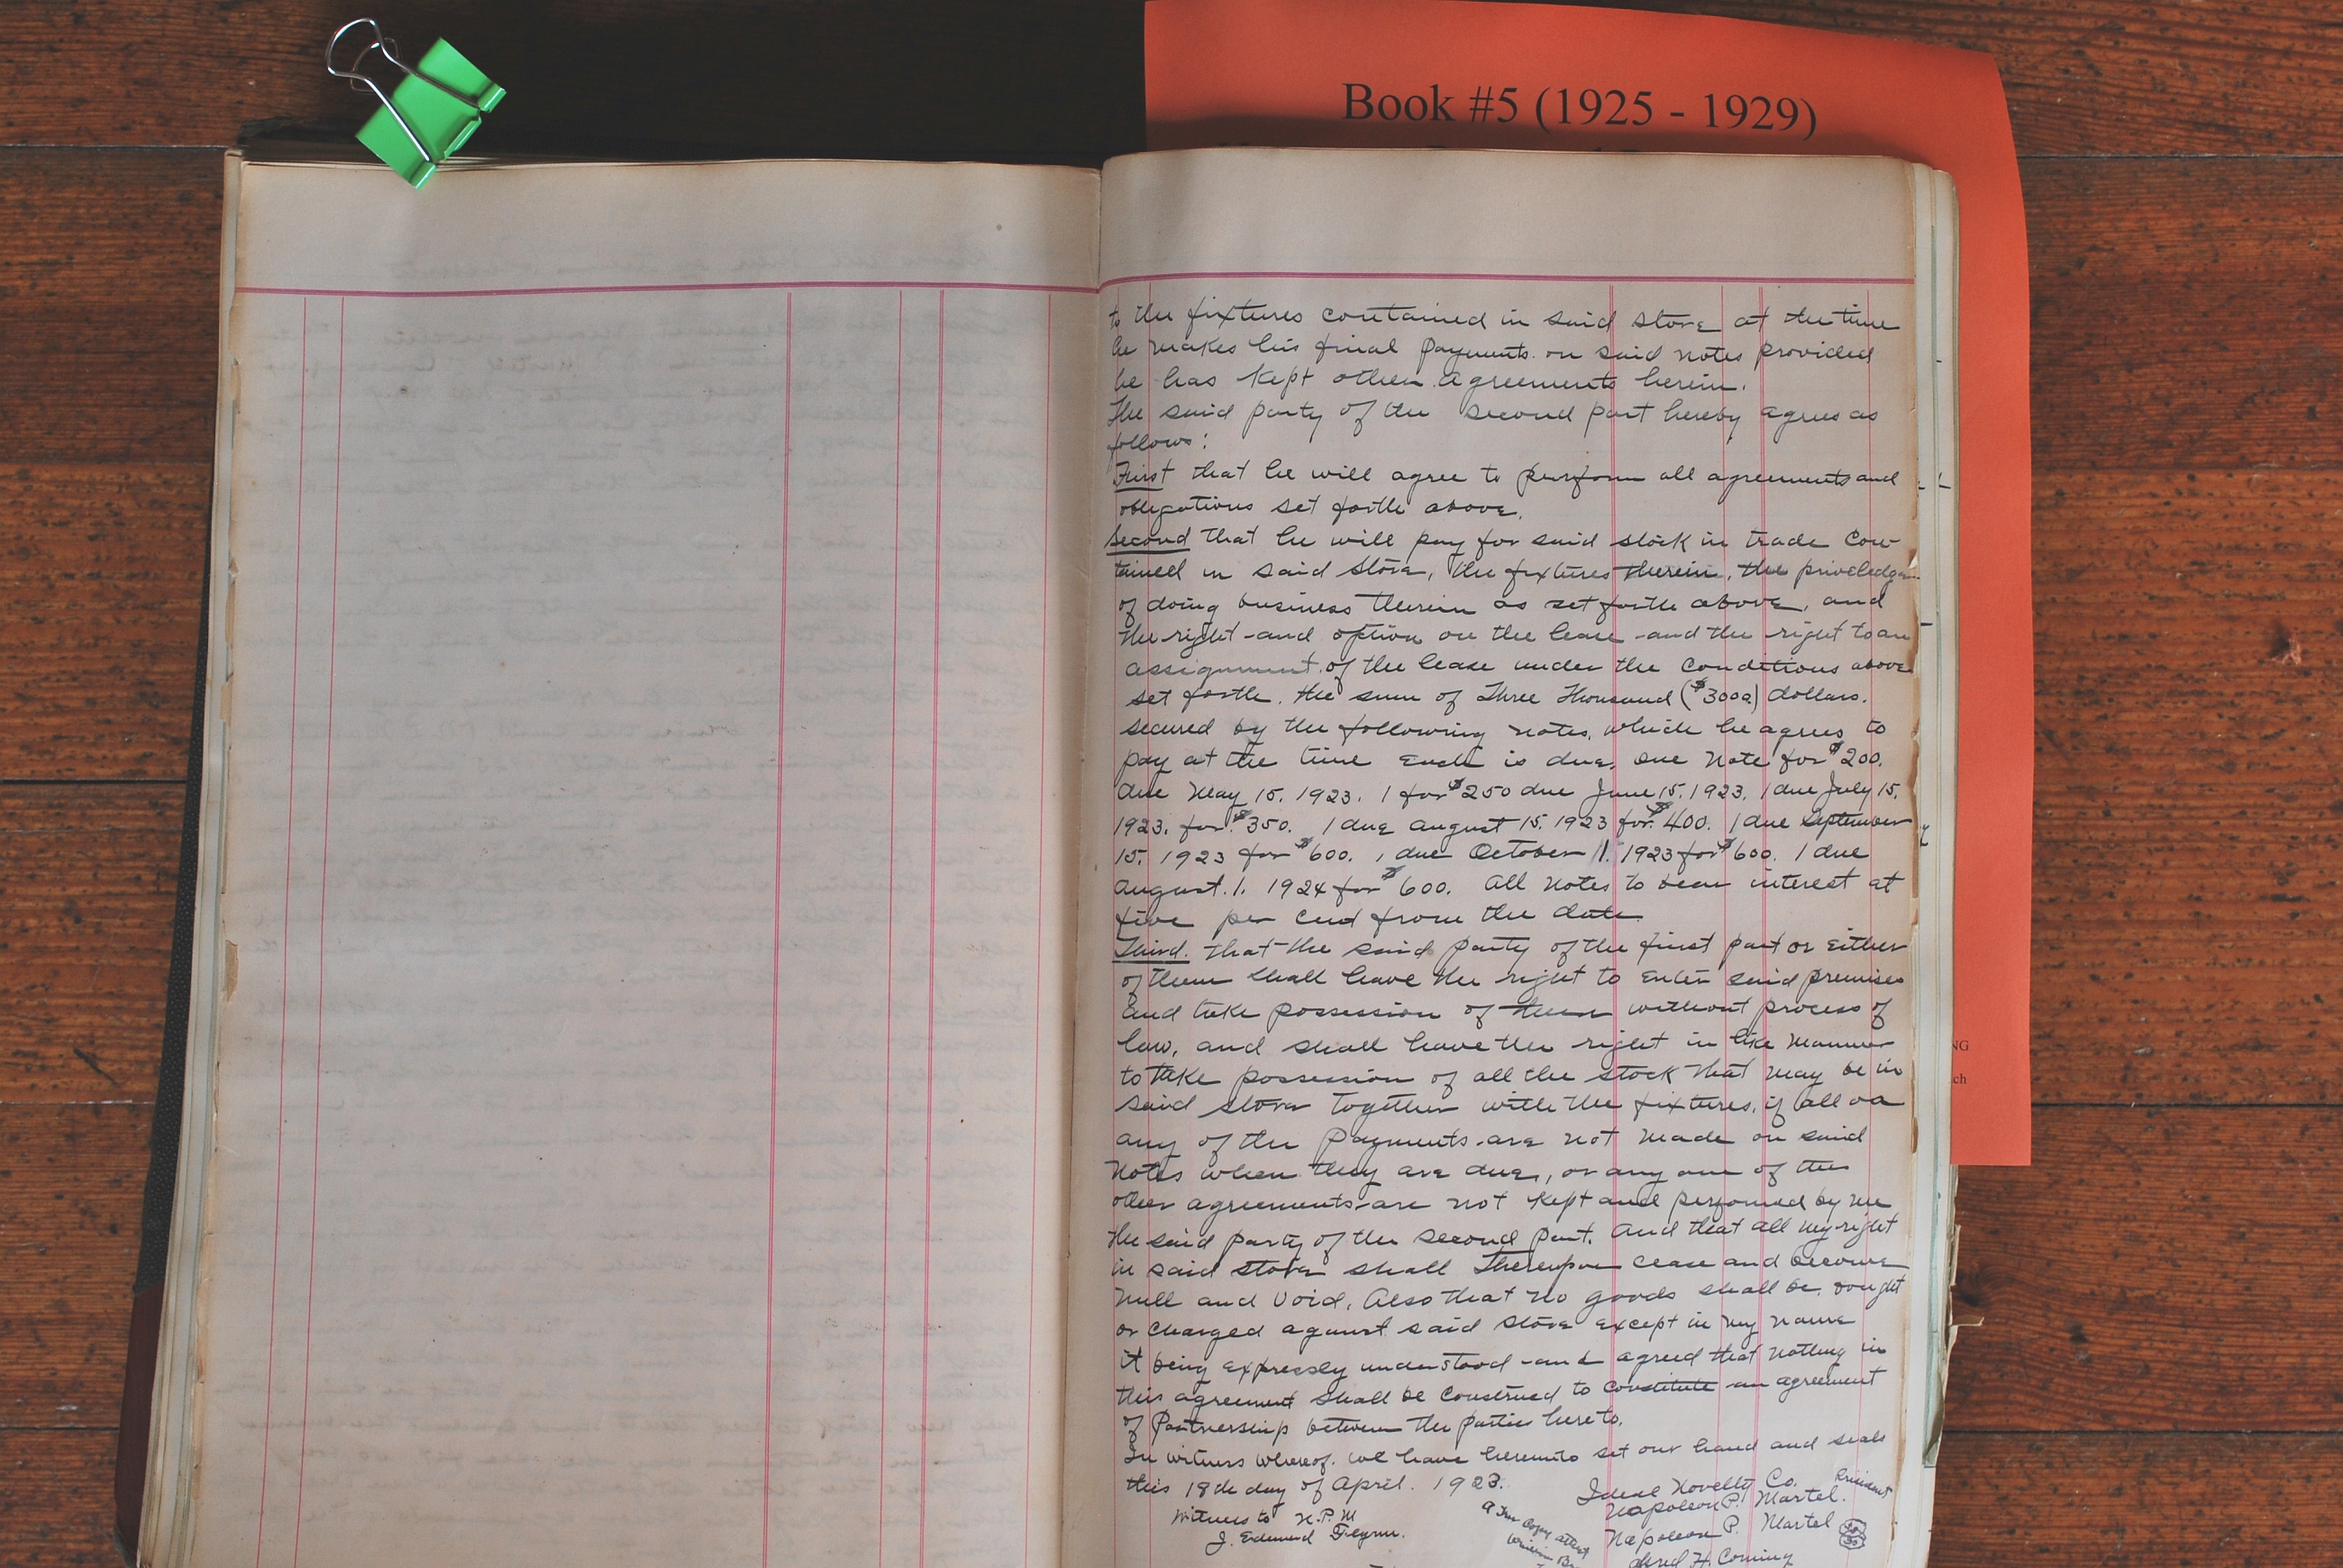 Book #5 (1925 - 1929)
to the fixtures contained in said store at the time
he makes his final payments on said notes provided
he has kept other agreements herein.
The said party of the second part hereby agrees as
follows:
First that he will agree to perform all agreements and
obligations set forth above.
Second that he will pay for said stock in trade con-
tained in said store, the fixtures therein, the priviledge
of doing business therein as set forth above, and
the right and option on the lease and the right to an
assignment of the lease under the conditions above
set forth. the sum of Three Thousand ($3000) dollars.
secured by the following notes, which he agrees to
pay at the time each is due, one note for $200.
due May 15. 1923. 1 for $250 due June 15. 1923. 1 due July 15.
1923. for $350. 1 due august 15. 1923 for $400. 1 due September
15. 1923 for $600. 1 due October 1. 1923 for $600. 1 due
august. 1. 1924 for $600. All notes to bear interest at
five per cend from the date
Third. that the said party of the first part or either
of them shall have the right to enter said premises
and take possession of them without process of
law, and shall have the right in like manner
to take possession of all the stock that may be in
said store together with the fixtures, if all or
any of the payments are not made on said
notes when they are due, or any one of the
other agreements are not kept and performed by me
the said party of the second part. And that all my right
in said store shall thereupon cease and become
null and void. Also that no goods shall be bought
or charged against said store except in my name
it being expressly understood and agreed that nothing in
this agreement shall be construed to constitute an agreement
of Partnership between the parties hereto.
In witness whereof. we have hereunto set our hand and seals
this 18th day of April. 1923.
Ideal Novelty Co.
Napoleon P. Martel. President
Witness to N.P.M
Napoleon P. Martel
J. Edmund Flynn.
A True Copy attest
H. Coming
NG
ch